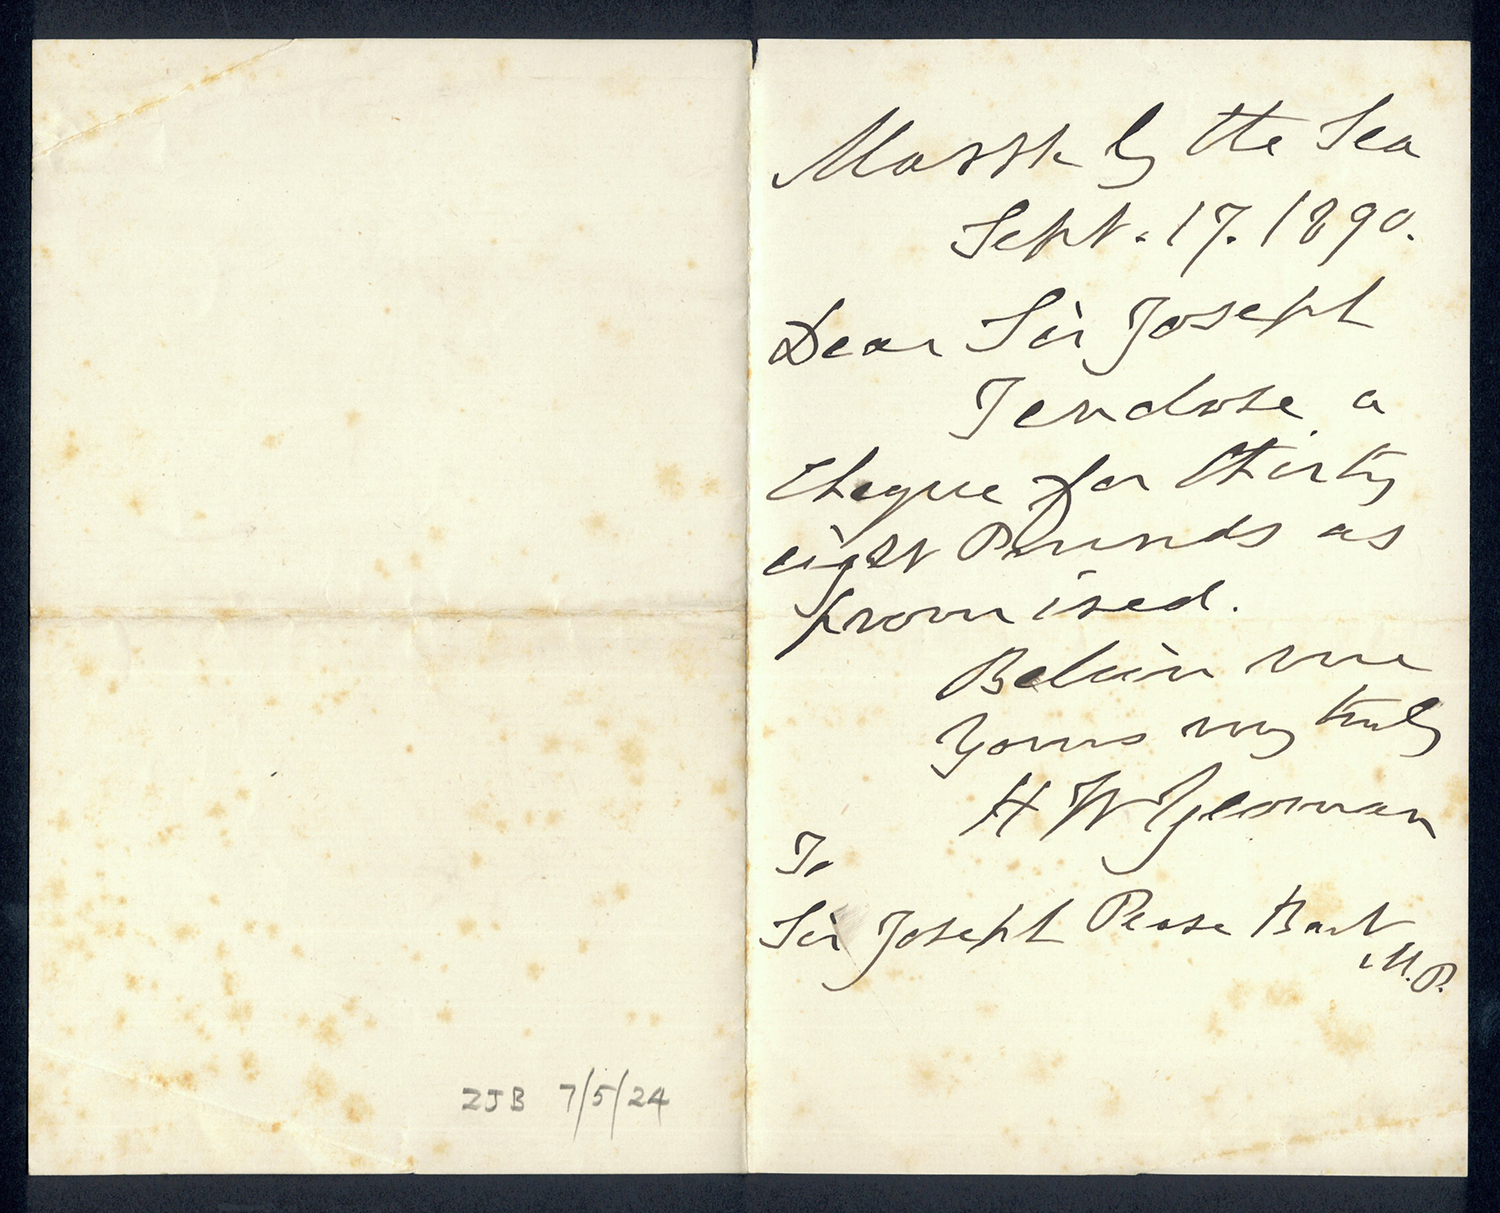 ZJB 7/5/24
Marsk by the Sea
Sept. 17. 1890.
Dear Sir Joseph
I enclose a
cheque for thirty
eight Pounds as
promised.
Believe me
Yours very truly
H W Yeoman
To
Sir Joseph Pease Bart
M.P.